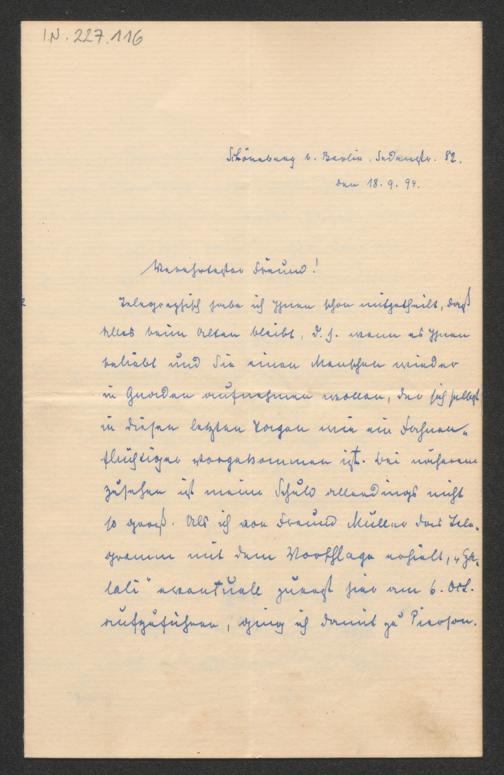 I.N. 227.116
Schöneberg b. Berlin. Sedanstr. 82.
den 18. 9. 94.
Verehrtester Freund!
Telegraphisch habe ich Ihnen schon mitgetheilt, daß
Alles beim Alten bleibt, d. h. wenn es Ihnen
beliebt und Sie einen Menschen wieder
in Gnaden aufnehmen wollen, der sich selbst
in diesen letzten Tagen wie ein Fahnen-
flüchtiger vorgekommen ist. Bei näherem
Zusehen ist meine Schuld allerdings nicht
so groß. Als ich von Freund Müller das Tele-
gramm mit dem Vorschlage erhielt,
eventuell zuerst hier am 6. Oct.
aufzuführen, ging ich damit zu Pierson.